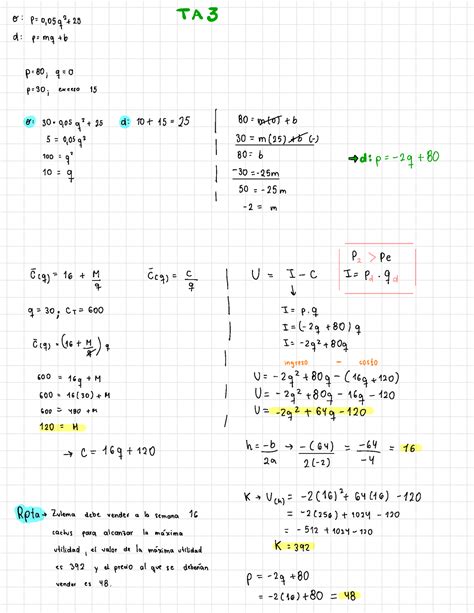 TA3
o: p=0,05q²+25
d: p=mq+b
p=80, q=0
p=30, exceso 15
o: 30=0,05q²+25
5=0,05q²
100=q²
10=q
d: 10+15=25
80=m(0)+b
30=m(25)+b (-)
80=b
-30=-25m
50=-25m
-2=m
→d: p=-2q+80
C̄(q)=16+M/q
C̄(q)=C/q
q=30; CT=600
C̄(q)=(16+M/q)q
600=16q+M
600=16(30)+M
600=480+M
120=M
→ C=16q+120
U=I-C
↓
I=p.q
I=(-2q+80)q
I=-2q²+80q
Pe
I=Pd.qd
ingreso - costo
U=-2q²+80q-(16q+120)
U=-2q²+80q-16q-120
U=-2q²+64q-120
h=-b/2a → -(64)/2(-2) = -64/-4 = 16
K→U(h)=-2(16)²+64(16)-120
=-2(256)+1024-120
=-512+1024-120
K=392
p=-2q+80
=-2(16)+80=48
Rpta→ Zulema debe vender a la semana 16
cactus para alcanzar la máxima
utilidad, el valor de la máxima utilidad
es 392 y el precio al que se deberían
vender es 48.